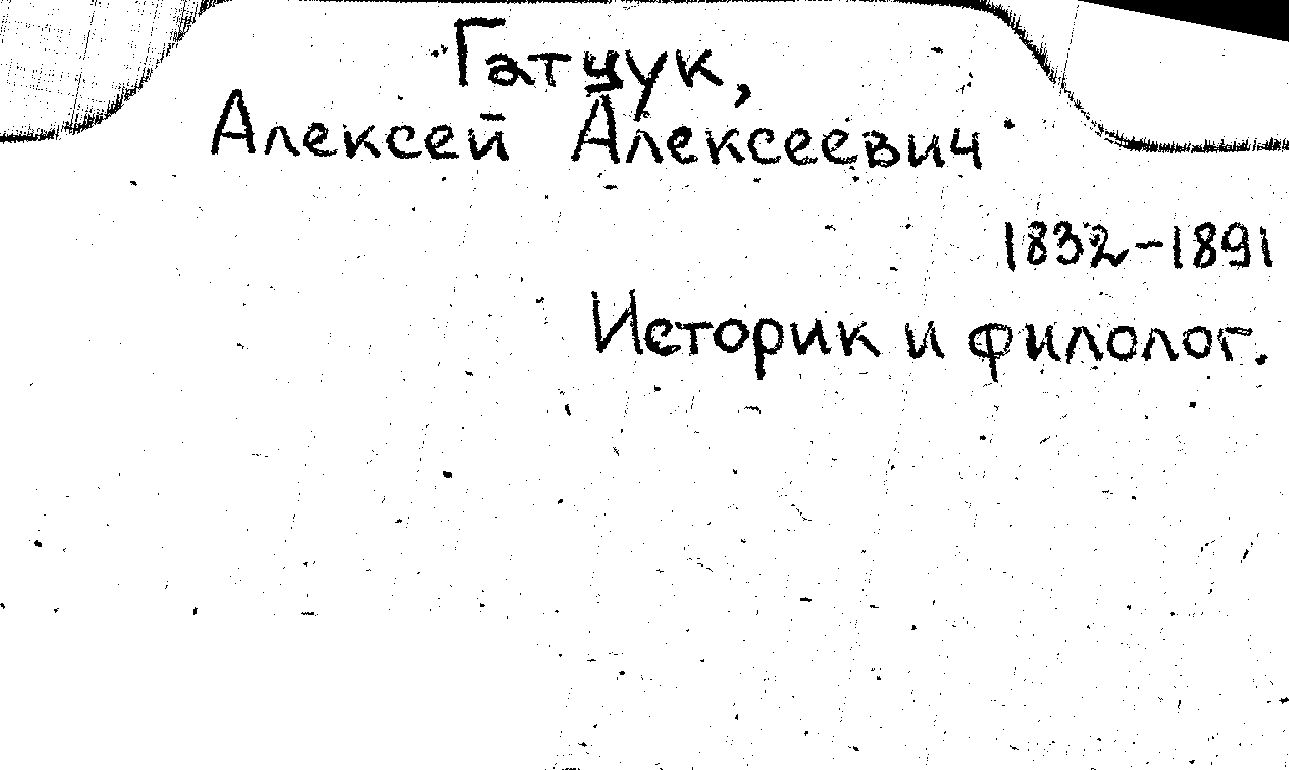 Гатцук,
Алексей Алексеевич
1832-1891
Историк и филолог.